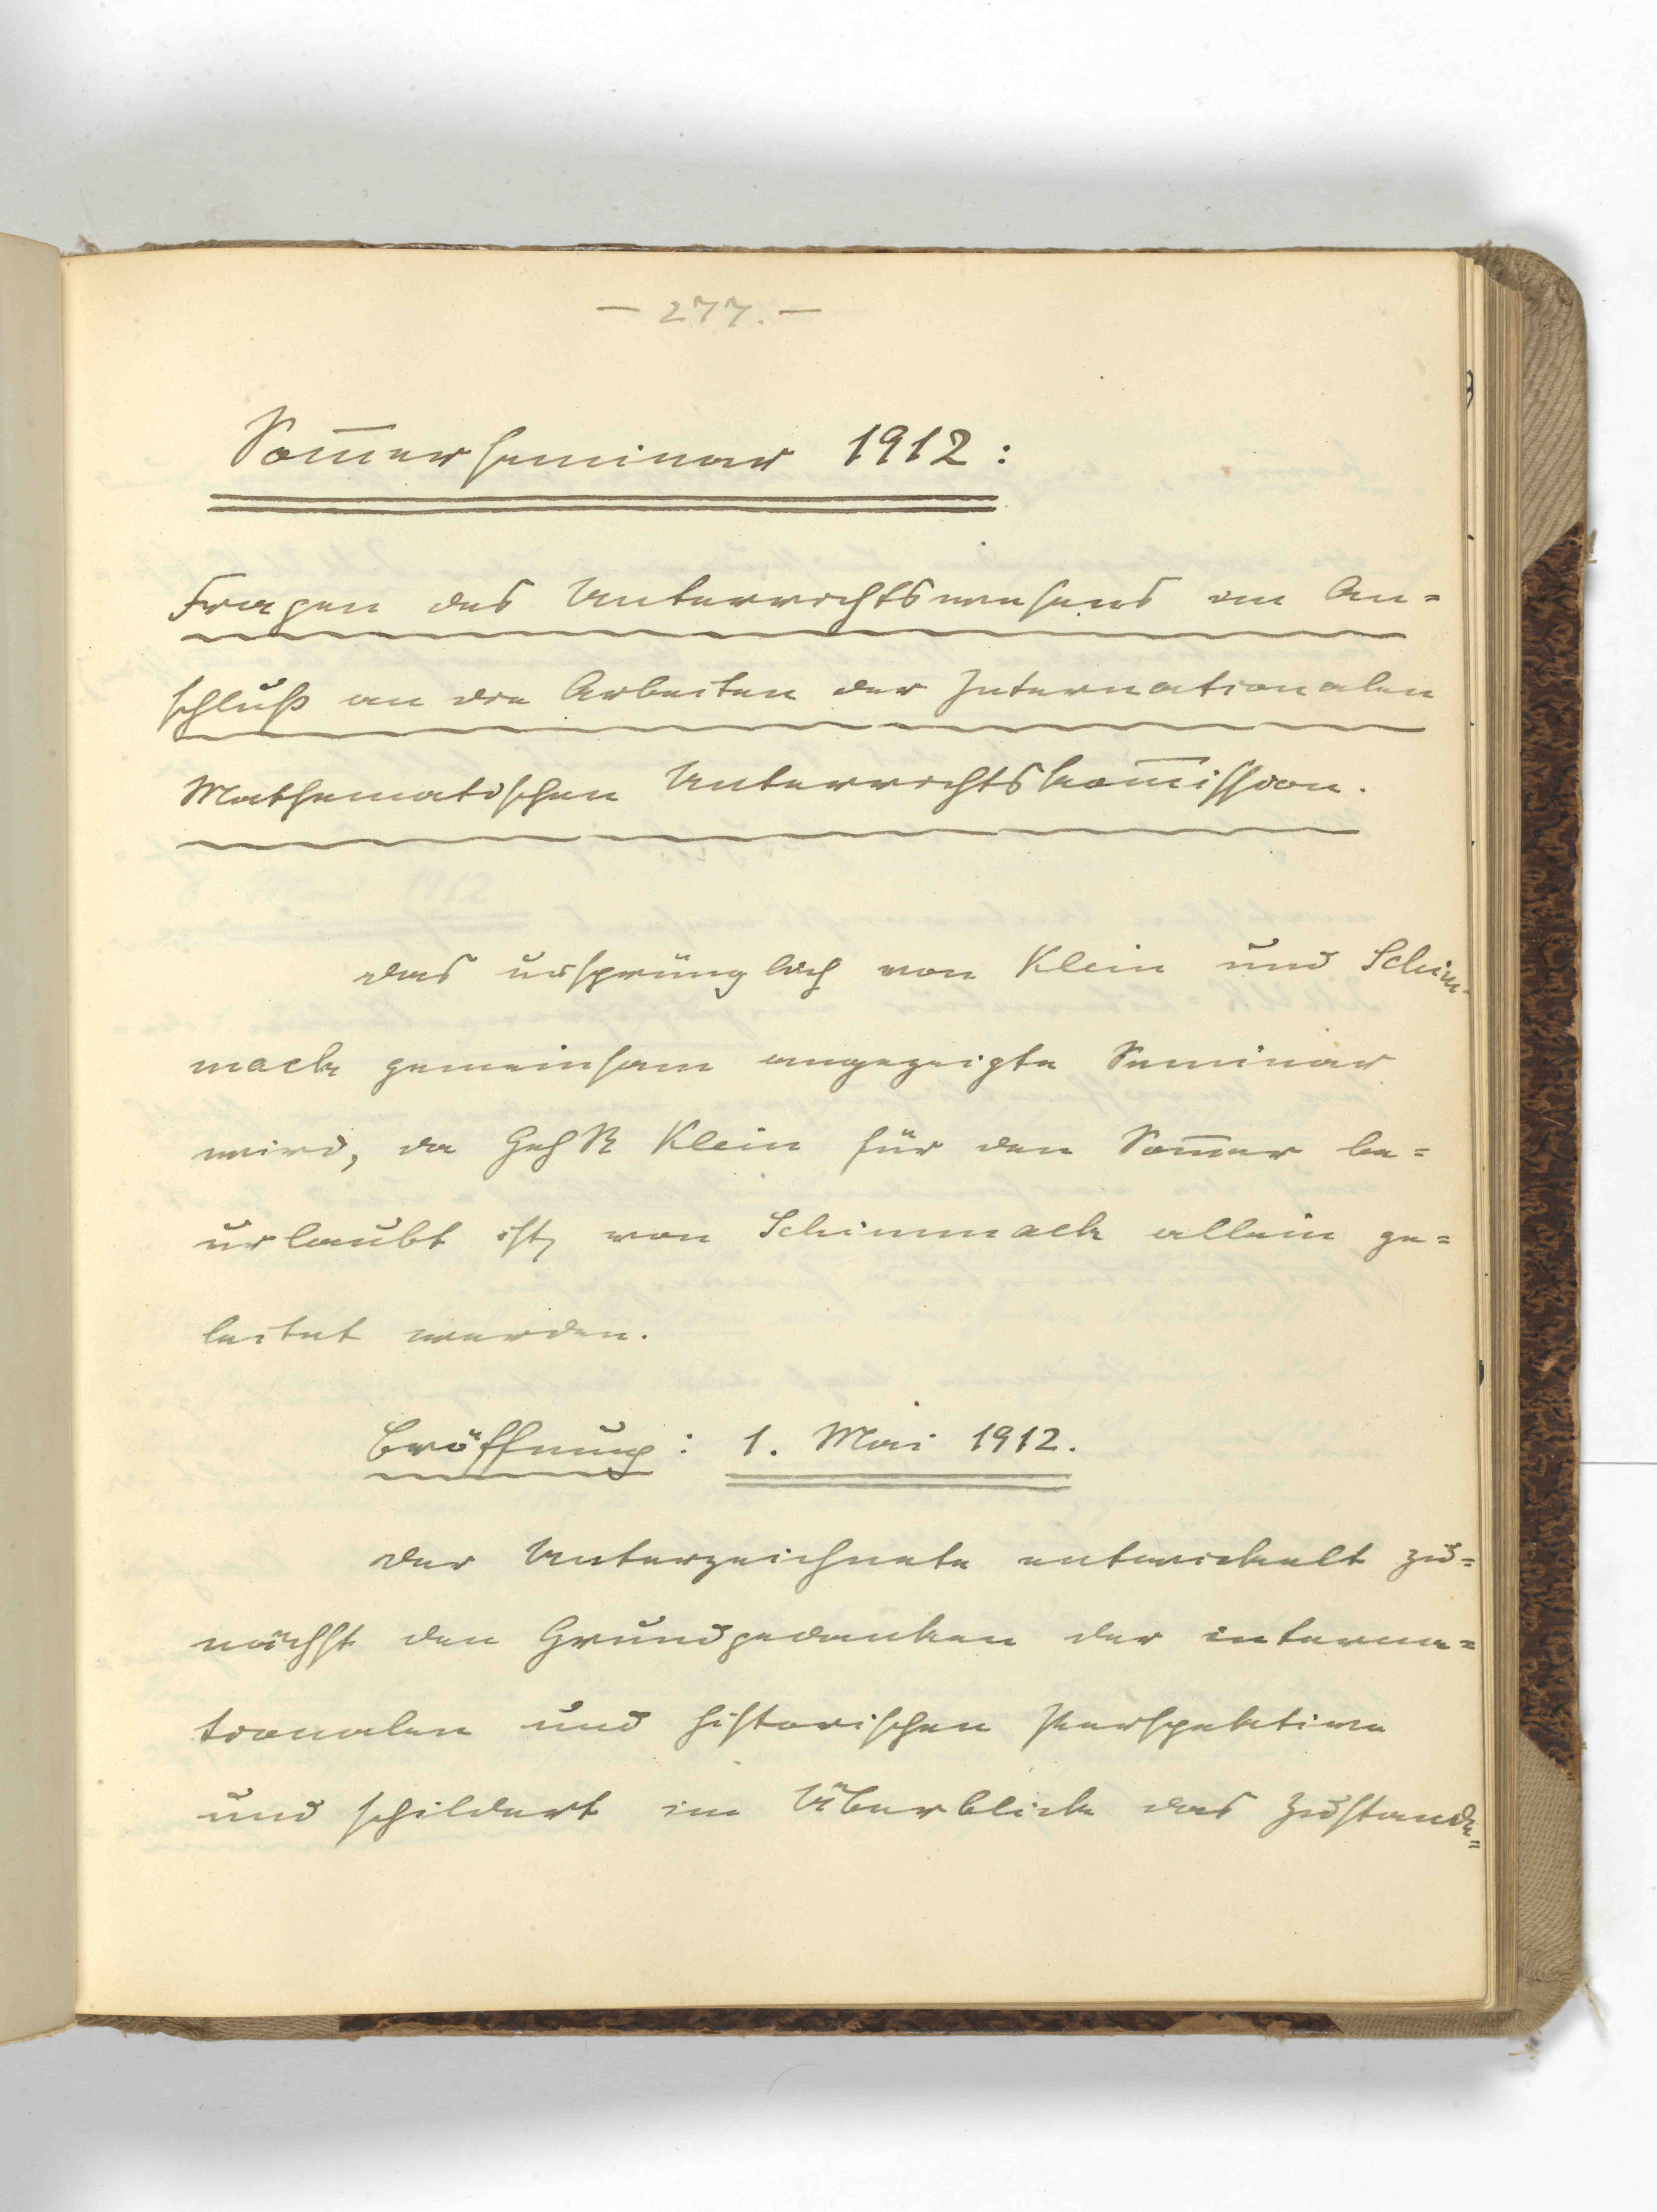 — 277. —
Som̅erseminar 1912:
Fragen des Unterrichtswesens im An=
schluß an die Arbeiten der Internationalen
Mathematischen Unterrichtskom̅ission.
Das ursprünglich von Klein und Schim-
mack gemeinsam angezeigte Seminar
wird, da GehR Klein für den Som̅er be=
urlaubt ist, von Schimmack allein ge=
leitet werden.
Eröffnung: 1. Mai 1912.
Der Unterzeichnete entwickelt zu=
nächst den Grundgedanken der interna=
tionalen und historischen Perspektive
und schildert im Überblick das Zustande=